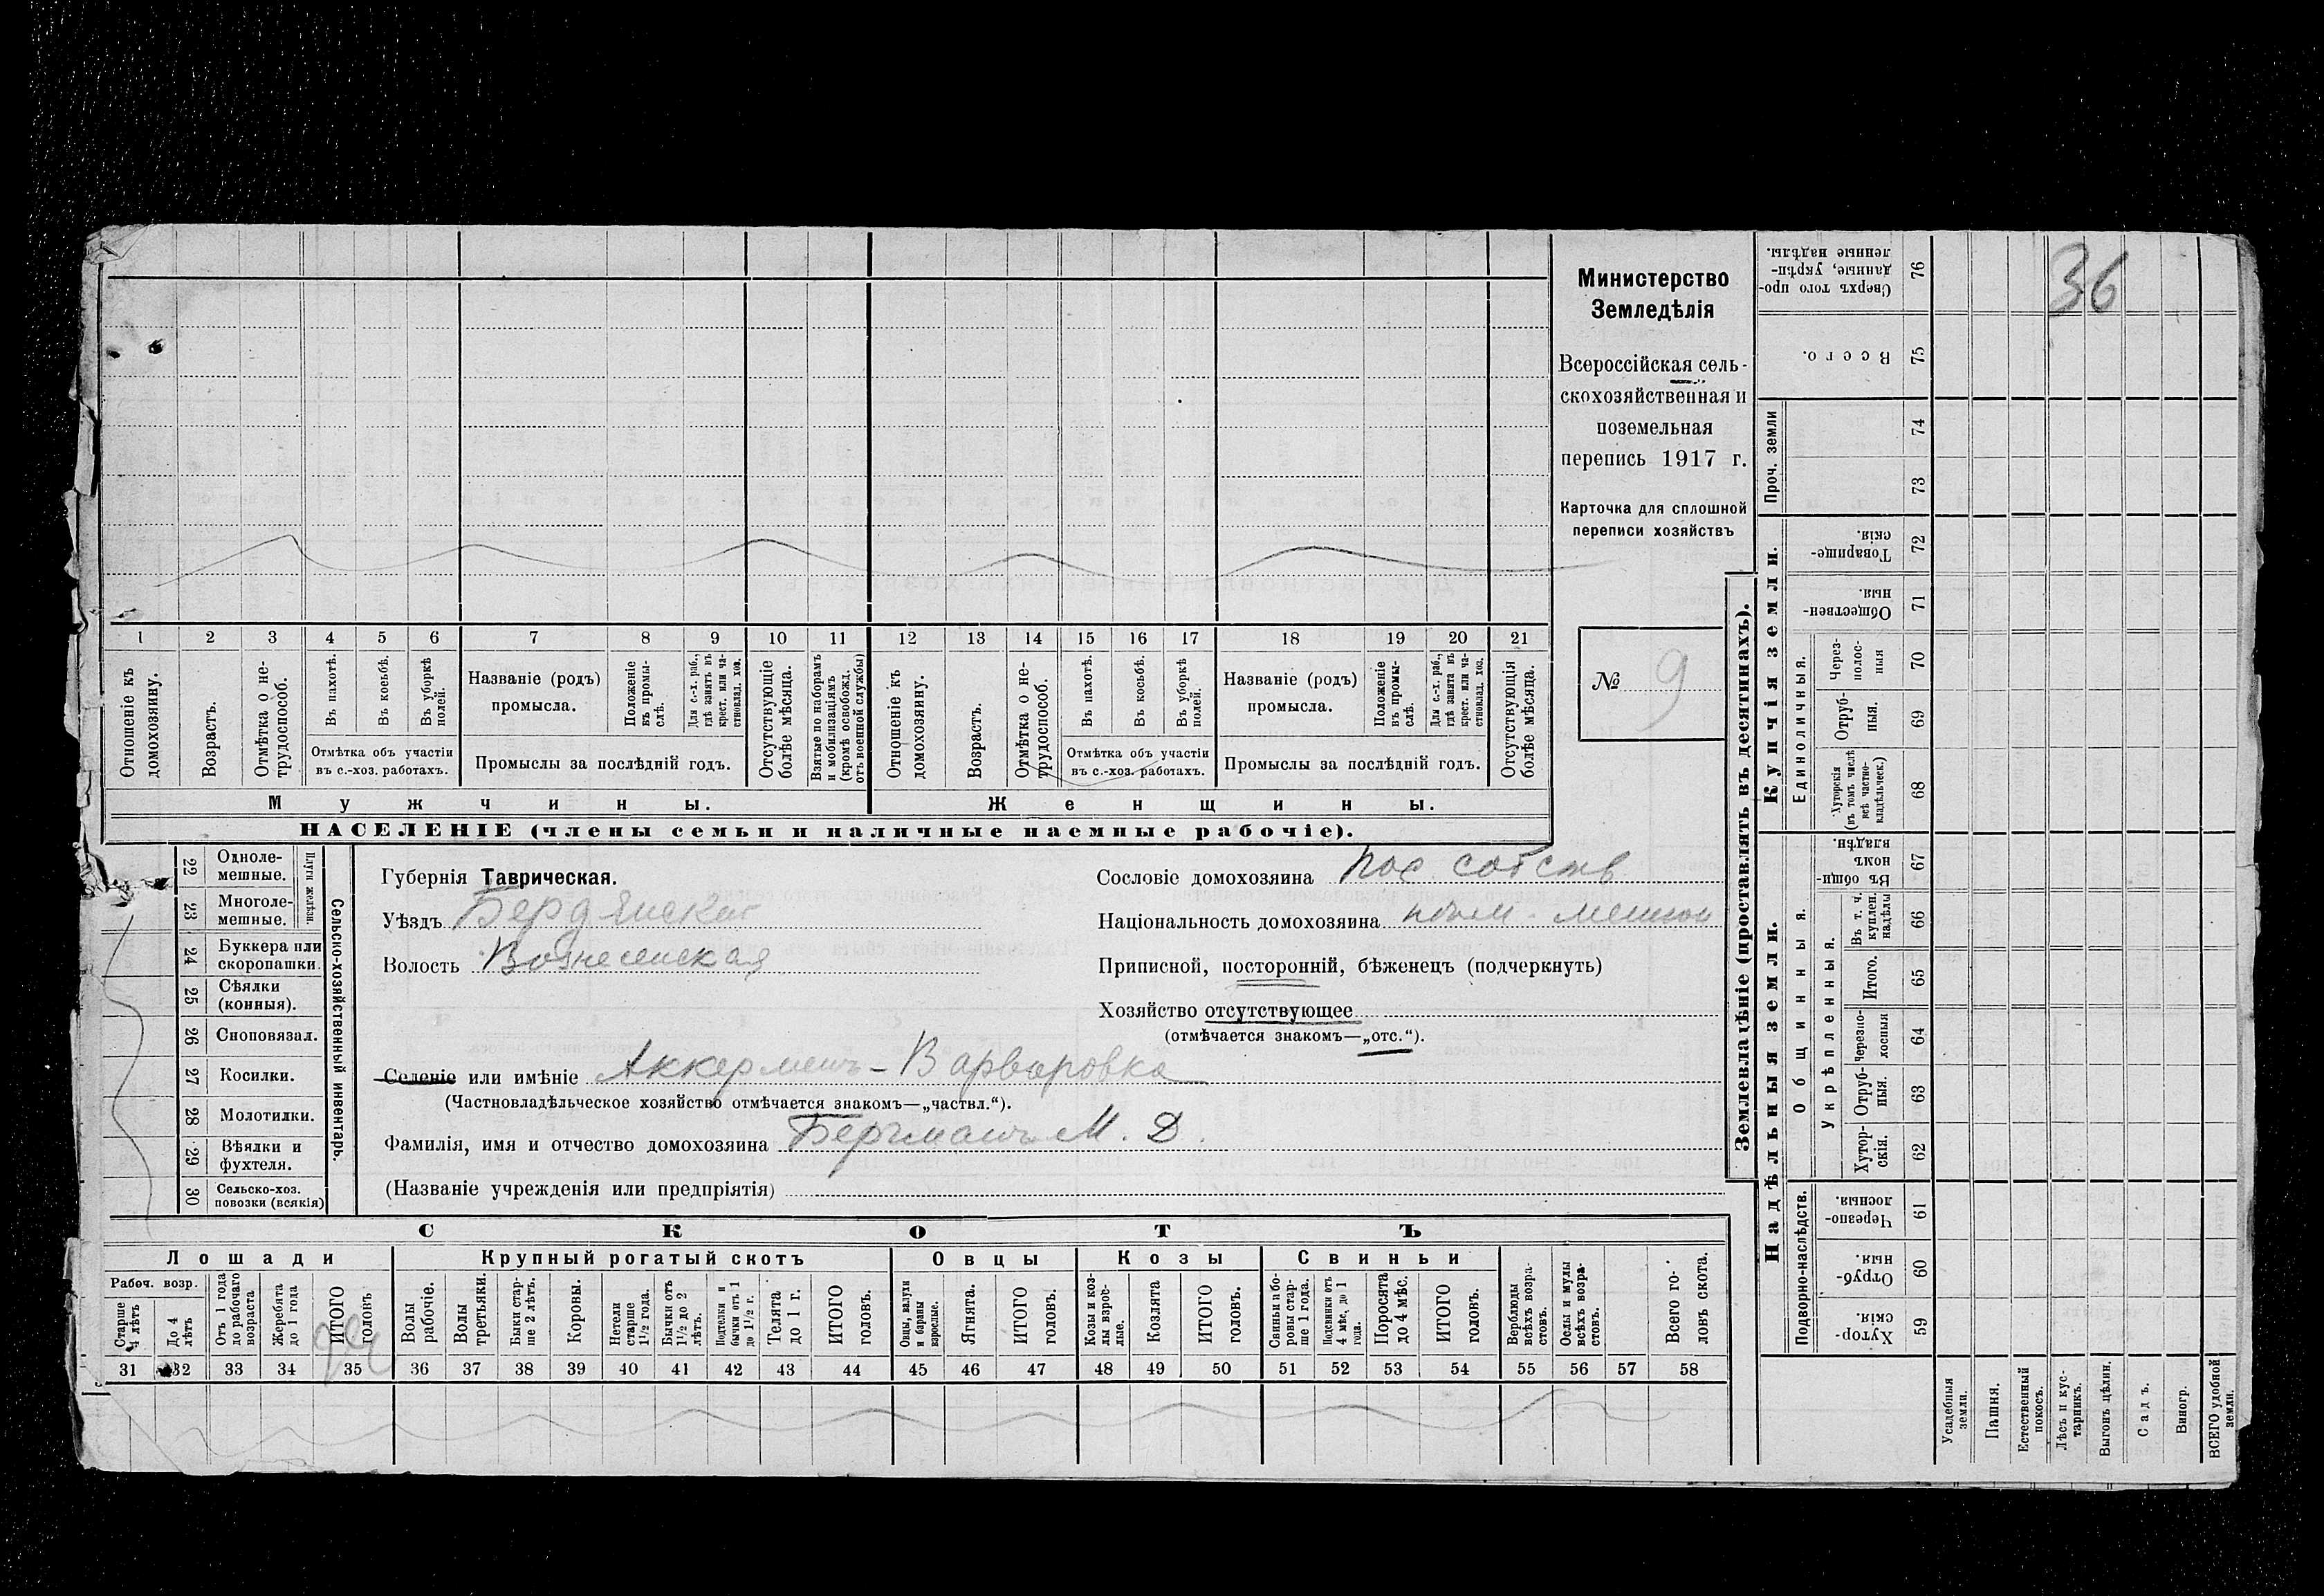 36
Министерство
Земледѣлія
Всероссійская сель-
скохозяйственная и
поземельная
перепись 1917 г.
Карточка для сплошной
переписи хозяйствъ
№ 9
1 2 3 4 5 6 7 8 9 10 11 12 13 14 15 16 17 18 19 20 21
Отношеніе къ домохозяину.
Возрастъ.
Отмѣтка о не-трудоспособ.
Въ пахотѣ.
Въ косьбѣ.
Въ уборкѣ полей.
Отмѣтка объ участіи
въ с.-хоз. работахъ.
Названіе (родъ)
промысла.
Положеніе въ промы-слѣ.
Для с.-х. раб., гдѣ занятъ въ крест. или ча-стновлад. хоз.
Промыслы за послѣдній годъ.
Отсутствующіе болѣе мѣсяца.
Взятые по наборамъ и мобилизаціямъ (кромѣ освобожд. отъ военной службы)
Отношеніе къ домохозяину.
Возрастъ.
Отмѣтка о не-трудоспособ.
Въ пахотѣ.
Въ косьбѣ.
Въ уборкѣ полей.
Отмѣтка объ участіи
въ с.-хоз. работахъ.
Названіе (родъ)
промысла.
Положеніе въ промы-слѣ.
Для с.-х. раб., гдѣ занята въ крест. или ча-стновлад. хоз.
Промыслы за послѣдній годъ.
Отсутствующія болѣе мѣсяца.
Мужчины. Женщины.
НАСЕЛЕНІЕ (члены семьи и наличные наемные рабочіе).
Сельско-хозяйственный инвентарь.
Плуги желѣзн.
22 Одноле-мешные.
23 Многоле-мешные.
24 Буккера или скоропашки.
25 Сѣялки (конныя).
26 Сноповязал.
27 Косилки.
28 Молотилки.
29 Вѣялки и фухтеля.
30 Сельско-хоз. повозки (всякія)
Губернія Таврическая.
Уѣздъ Бердянскій
Волость Вознесенская
Сословіе домохозяина пос. собств
Національность домохозяина
Приписной, посторонній, бѣженецъ (подчеркнуть)
Хозяйство отсутствующее
(отмѣчается знакомъ—„отс.“).
Селеніе или имѣніе Аккерменъ-Варваровка
(Частновладѣльческое хозяйство отмѣчается знакомъ—„частвл.“).
Фамилія, имя и отчество домохозяина Бергманъ М. Д.
(Названіе учрежденія или предпріятія)
СКОТЪ
Лошади Крупный рогатый скотъ Овцы Козы Свиньи
Рабоч. возр.
Старше 4 лѣтъ
До 4 лѣтъ
Отъ 1 года до рабочаго возраста
Жеребята до 1 года
ИТОГО головъ
Волы рабочіе.
Волы третьяки.
Быки стар-ше 2 лѣтъ.
Коровы.
Нетели старше 1½ года.
Бычки отъ 1½ до 2 лѣтъ.
Подтелки и бычки отъ 1 до 1½ г.
Телята до 1 г.
ИТОГО головъ.
Овцы, валухи и бараны взрослые.
Ягнята.
ИТОГО головъ.
Козы и коз-лы взрос-лые.
Козлята
ИТОГО головъ.
Свиньи и бо-ровы стар-ше 1 года.
Подсвинки отъ 4 мѣс. до 1 года.
Поросята до 4 мѣс.
ИТОГО головъ.
Верблюды всѣхъ возра-стовъ.
Ослы и мулы всѣхъ возра-стовъ.
Всего го-ловъ скота.
31 32 33 34 35 36 37 38 39 40 41 42 43 44 45 46 47 48 49 50 51 52 53 54 55 56 57 58
Землевладѣніе (проставлять въ десятинахъ).
Надѣльныя земли. Купчія земли. Проч. земли
Подворно-наслѣдств.
Общинныя.
Укрѣпленныя.
Единоличныя.
Сверхъ того про-данные, укрѣп-ленные надѣлы. 76
Всего. 75
74
73
Товарище-скія. 72
Обществен-ныя. 71
Через-полос-ныя 70
Отруб-ныя. 69
Хуторскія (въ томъ числѣ всѣ частно-владѣльческ.) 68
Въ общи-номъ владѣн. 67
Въ т. ч. куплен. надѣлы 66
Итого. 65
Черезпо-лосныя 64
Отруб-ныя. 63
Хутор-скія. 62
Черезпо-лосныя. 61
Отруб-ныя. 60
Хутор-скія. 59
Усадебныя земли.
Пашня.
Естественный покосъ.
Лѣсъ и кус-тарникъ.
Выгонъ цѣлин.
Садъ.
Виногр.
ВСЕГО удобной земли.